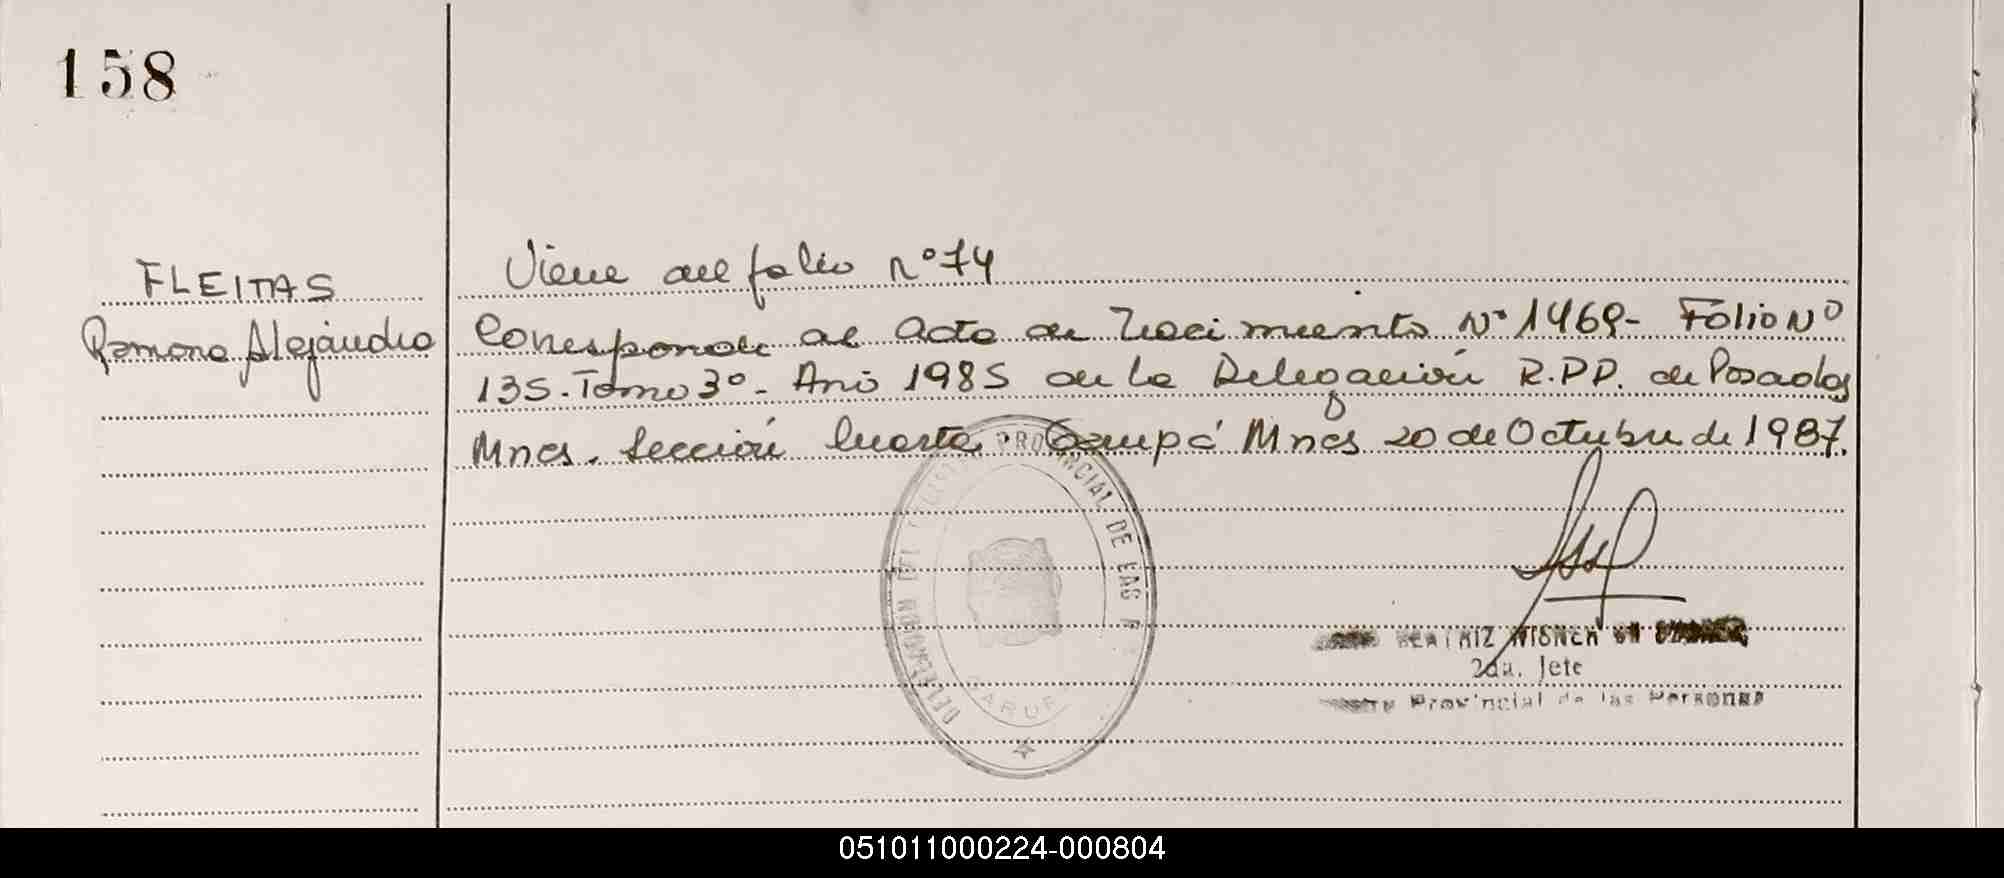 158
FLEITAS
Ramona Alejandra
Viene del folio nº 74
Corresponde al Acta de Nacimiento Nº 1469- Folio Nº
135. Tomo 3º- Año 1985 de la Delegación R.P.P. de Posadas
Mnes. Sección Cuarta Garupá Mnes 20 de Octubre de 1987.
DELEGACION DEL REGISTRO PROVINCIAL DE LAS P
GARUPA
BEATRIZ
2da. Jefe
Provincial de las Personas
051011000224-000804